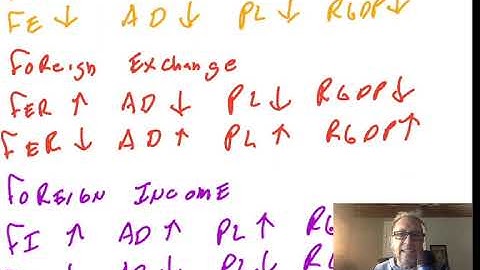 FE ↓ AD ↓ PL ↓ RGDP ↓
Foreign Exchange
FER ↑ AD ↓ PL ↓ RGDP ↓
FER ↓ AD ↑ PL ↑ RGDP ↑
Foreign Income
FI ↑ AD ↑ PL ↑
↓ AD ↓ PL ↓